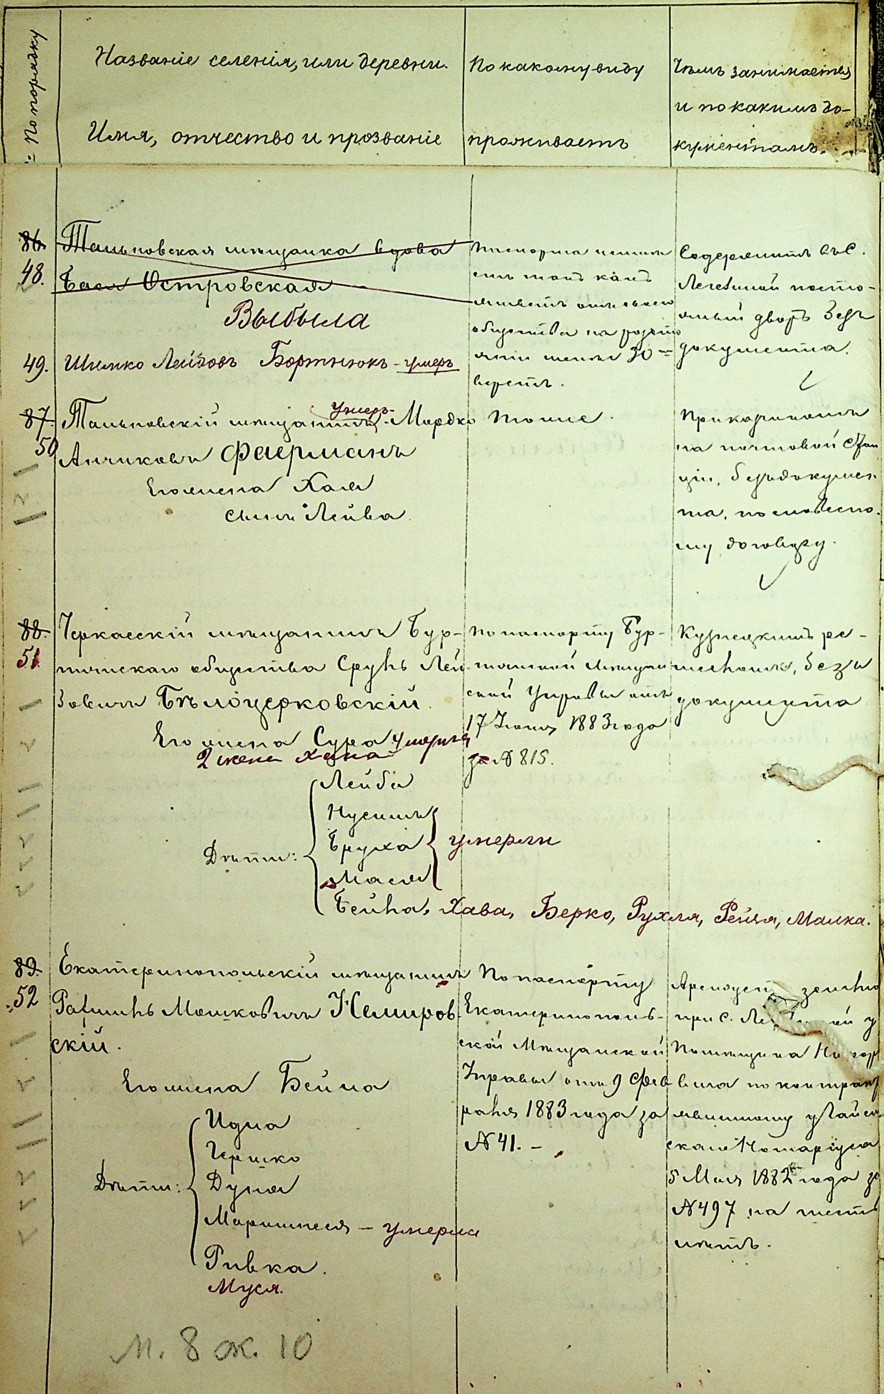 По порядку
Названіе селенія, или деревни.
Имя, отчество и прозваніе
По какому виду
проживаетъ
Чѣмъ занимается
и по какимъ до-
кументамъ.
86.
48.
Тальновская мѣщанка вдова
Бася Островская
Выбыла
49. Шимко Лейбовъ Бортнюкъ - умеръ
паспорта
такъ какъ
общества на
30-
верстъ.
Содержитъ въ с.
посто-
ялый дворъ безъ
документа.
87.
50
умеръ
Тальновскій мѣщанинъ - Мордко
Анчиковъ Фаерманъ
Его жена Хая
сынъ Лейва
тоже.
Прикащикомъ
на почтовой стан
ціи, безъ докумен-
та, по словесно-
му договору.
88.
51
Черкасскій мѣщанинъ Бур-
тянскаго общества Сруль Лей-
зовичъ Бѣлоцерковскій.
Его жена Сура умерла
2 жена Хана
Дѣти:
Лейба
Нусимъ
Бруха
Мася
умерли
Бейла, Хава, Берко, Рухля, Рейзя, Малка.
по паспорту Бур-
тянской мѣщан
ской Управы отъ
17 Іюня 1883 года
за № 815.
Кузнецкимъ ре-
месломъ, безъ
документа
89.
52
Екатеринопольскій мѣщанинъ
Рафаилъ Мошковичъ Немиров-
скій.
Его жена Бейла
Дѣти:
Идла
Гершко
Дуня
Маріяся - умерла
Ривка.
Муся.
По паспорту
Екатеринополь-
ской Мѣщанской
Управы отъ 9 Фев
раля 1883 года за
№ 41. -
Арендуетъ землю
при с.
Помѣщика
по контракт
Нотаріуса
5 Мая 1882 года за
№ 497 на шесть
лѣтъ.
м. 8 ж. 10